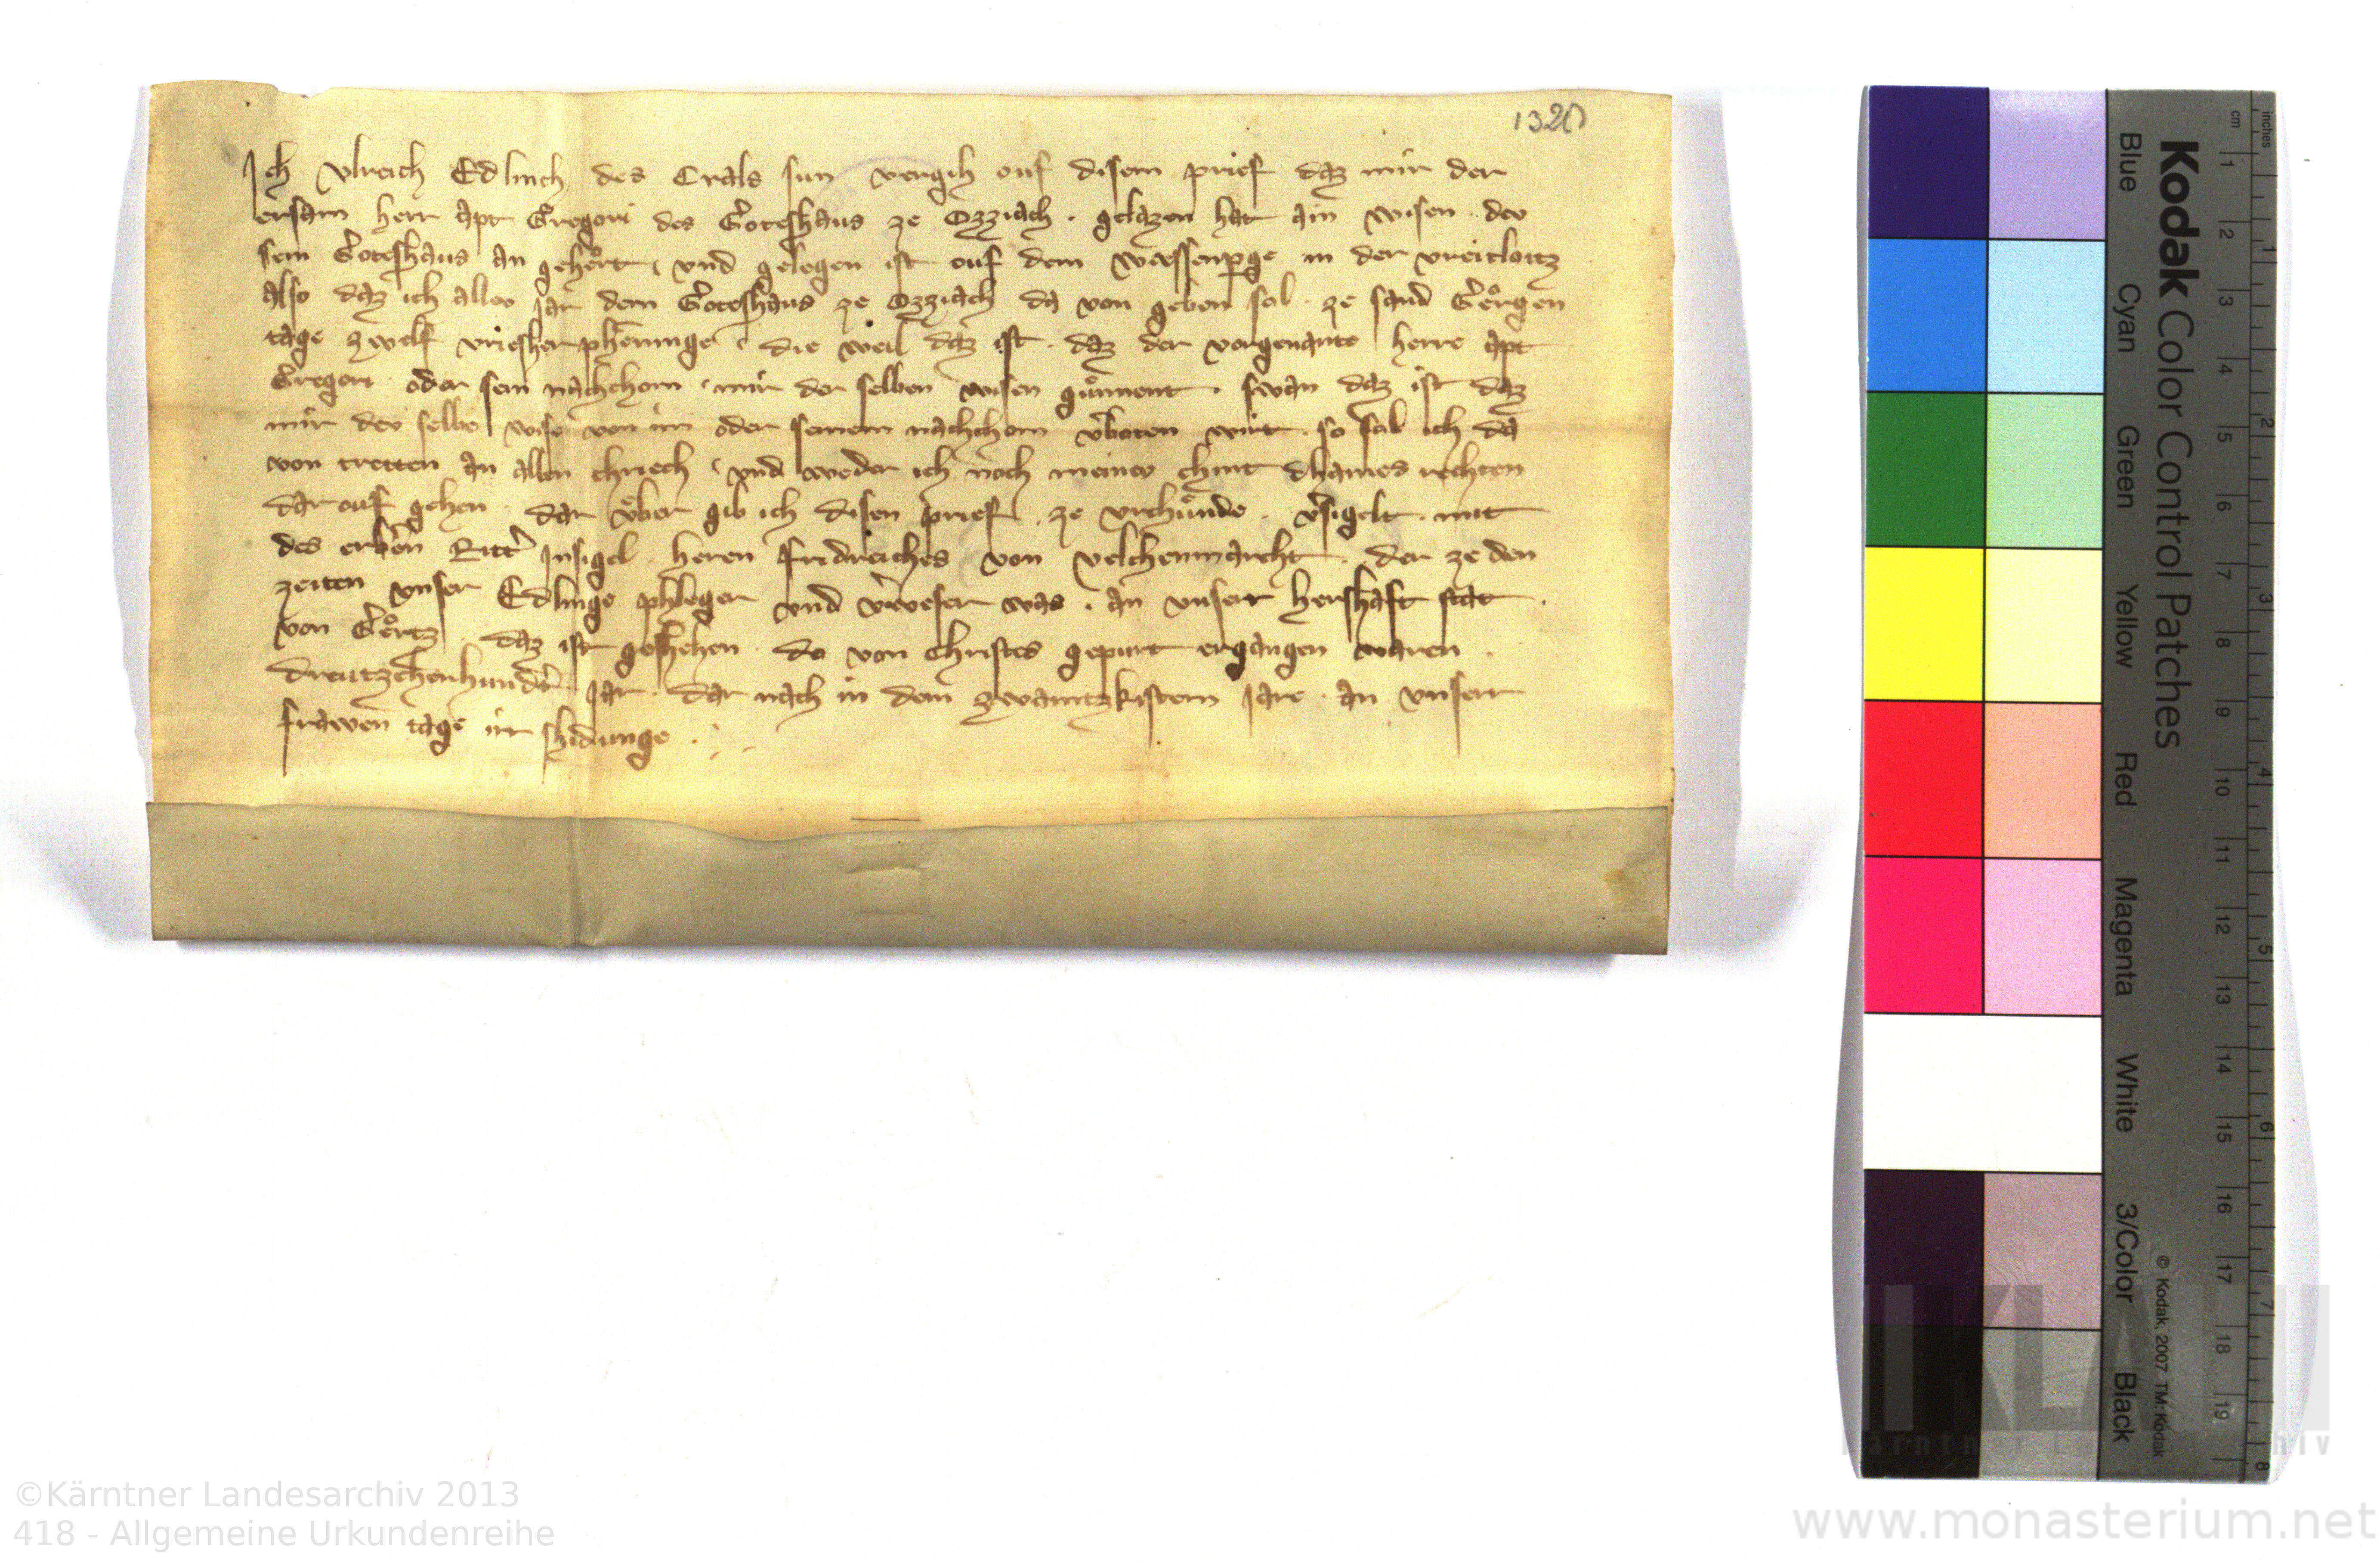 1320
Ich Vlreich Edlinch des Crals sun vergih ouf disem prief daz mir der
ersam herr apt Gregori des Goteshaus ze Ozziach . gelazen hat ain wisen dev
sein Goteshaus an gehoͤrt , vnd gelegen ist ouf dem in der
also daz ich allev Jar dem Goteshaus ze Ozziach da von geben sol . ze sand Geoͤrgen
tage zwelf vriesher phenninge . die weil daz ist . daz der vorgenante herre apt
Gregori oder sein nachchom . mir der selben wisen guͦnnent . swan daz ist daz
mir dev selbe wise von im oder seinem nachchom v̄boten wirt . so sol ich da
von tretten an allen chriech . vnd weder ich noch meinev chint dhaines rechten
dar ouf gehen . dar vͤber gib ich disen prief . ze vrchuͤnde . v̄sigelt . mit
des erbern Ritt̄ Insigel . heren fridreiches von velchenmarcht . der ze den
zeiten vnser Edlinge phleger vnd v̄weser was . an vnserr hershaft stat .
von Geͦrtz . daz ist geshehen . do von Christes gepurt ergangen waren .
dreutzehenhundert Jar . dar nach in dem zwaintzkistem Jare . an vnserr
frawen tage irr shidunge .
Kodak Color Control Patches
Blue Cyan Green Yellow Red Magenta White 3/Color Black
© Kodak, 2007 TM: Kodak
cm 1 2 3 4 5 6 7 8 9 10 11 12 13 14 15 16 17 18 19
inches 1 2 3 4 5 6 7 8
©Kärntner Landesarchiv 2013
418 - Allgemeine Urkundenreihe
www.monasterium.net